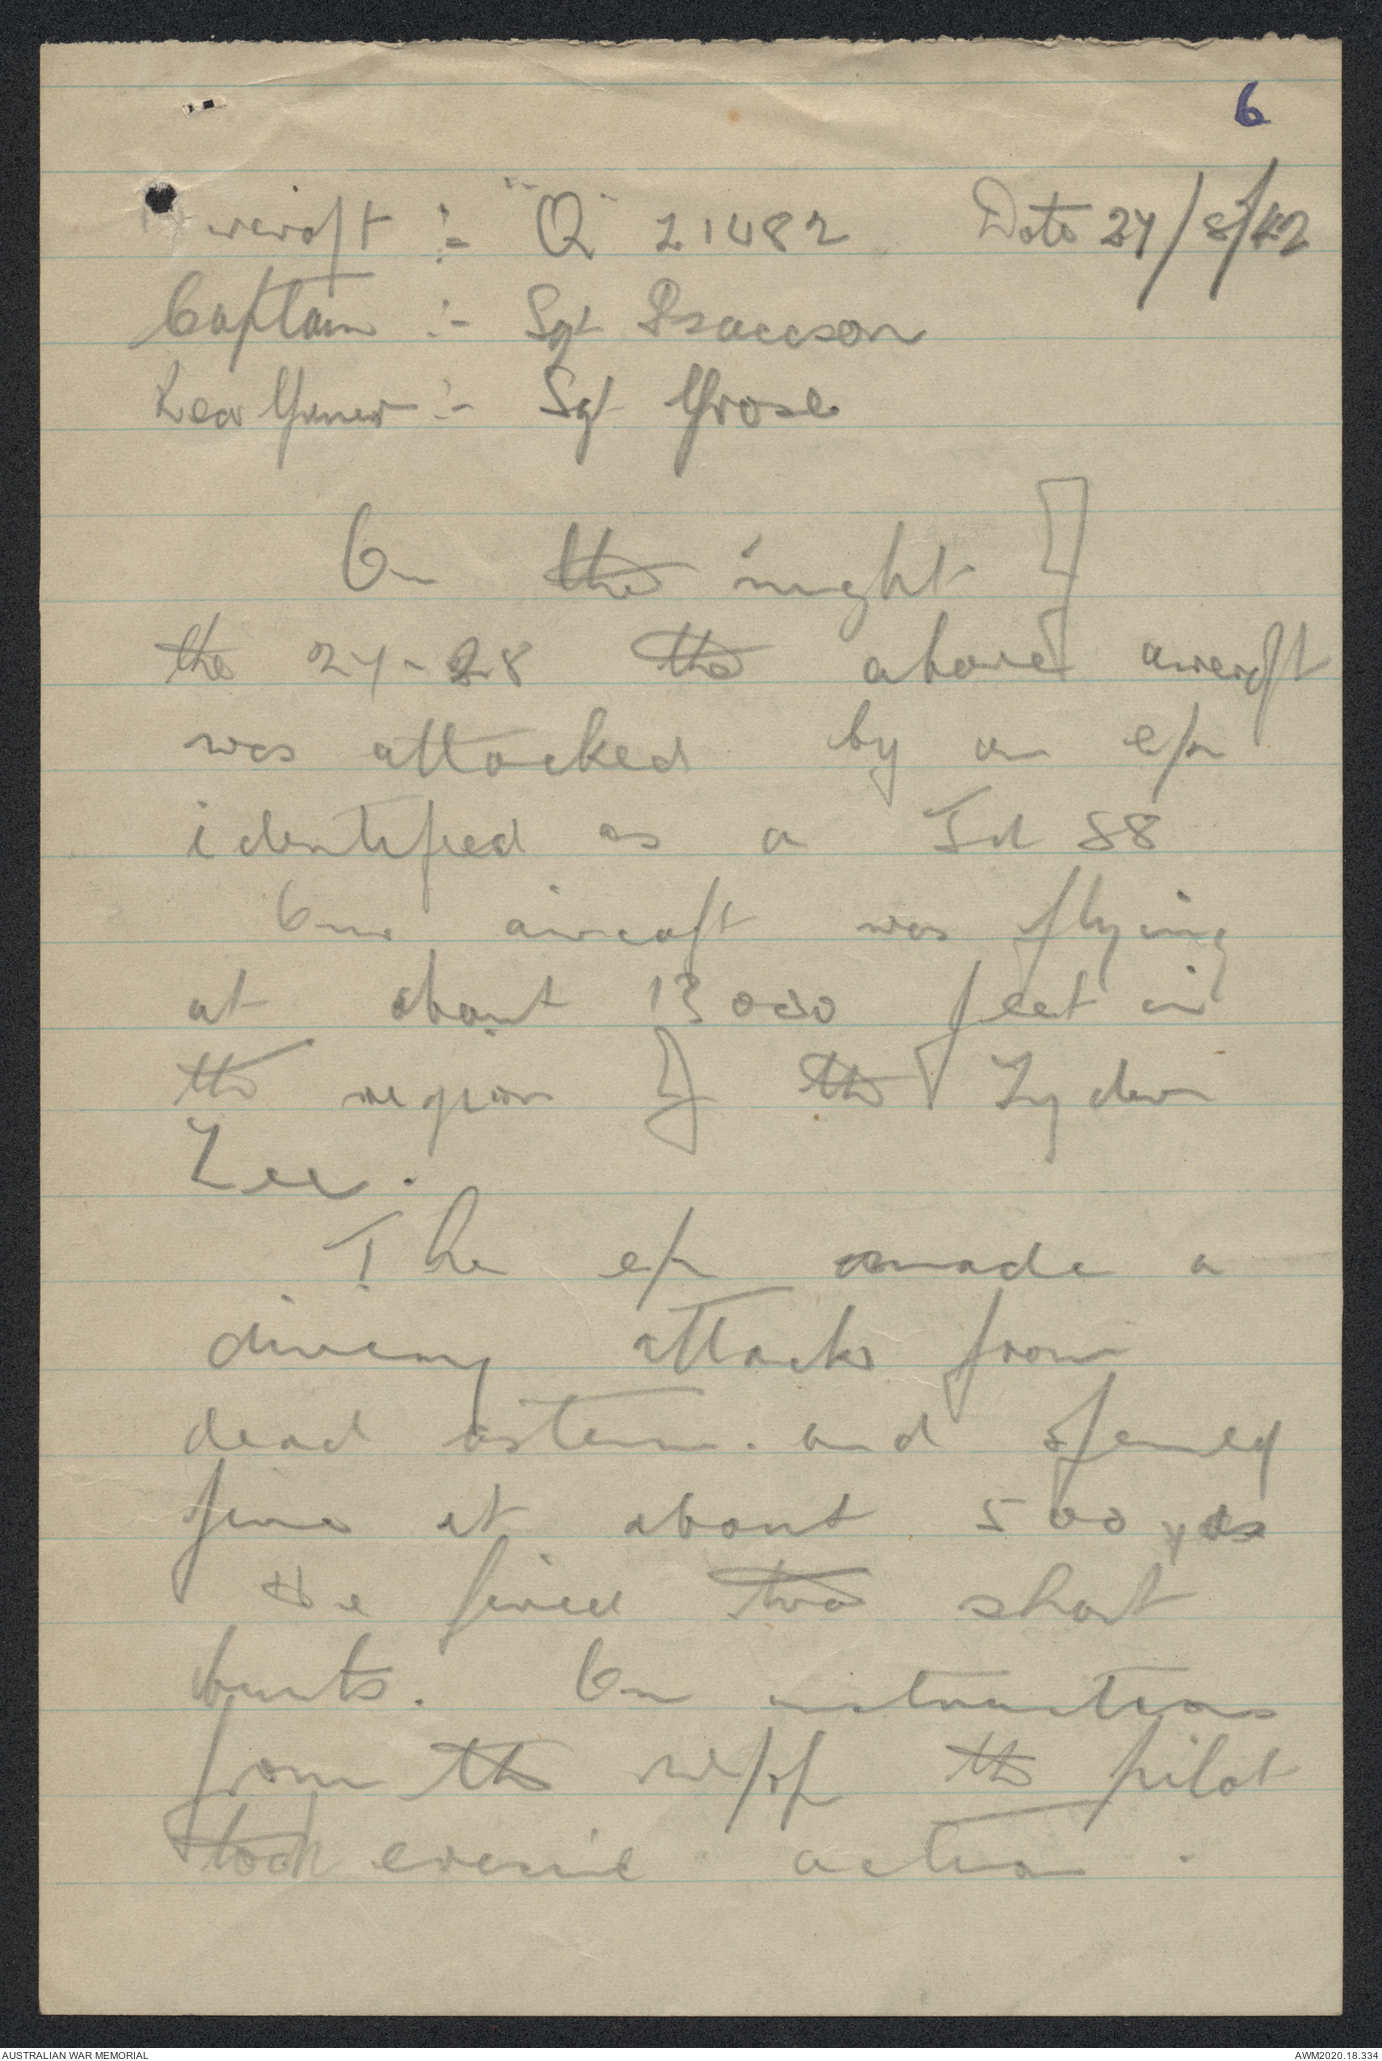 6
Aircraft :- "Q" Z1482 Date 27/8/42
Captain :- Sgt Isaacson
Rear Gunner :- Sgt Grose
On the night of
the 27-28 the above aircraft
was attacked by an e/a
identified as a Ju 88
Our aircraft was flying
at about 13000 feet in
the region of the Zyder
Zee.
The e/a made a
diving attack from
dead astern. and opened
fire at about 500 yds
He fired two short
bursts. On instructions
from the the pilot
took evasive action.
AUSTRALIAN WAR MEMORIAL AWM2020.18.334